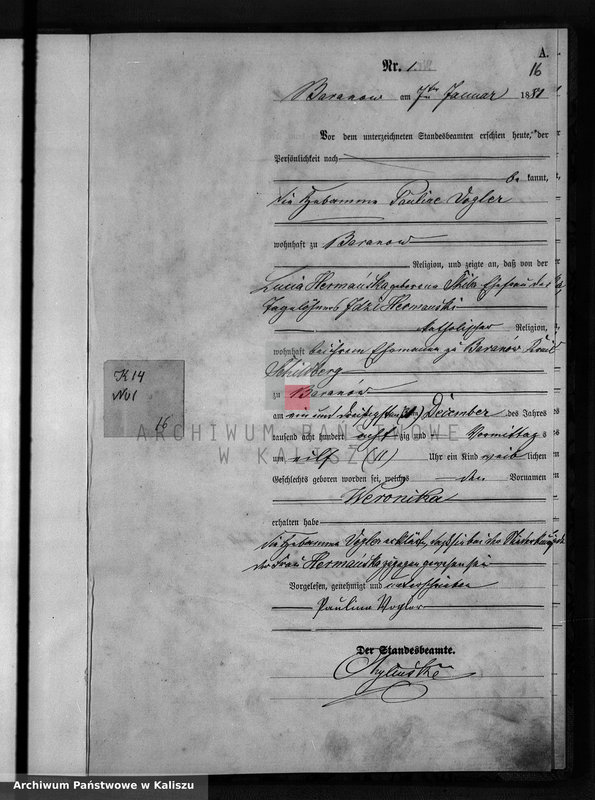 A.
Nr. 1.
16
Baranow am 7ten Januar 1881
Vor dem unterzeichneten Standesbeamten erschien heute, der
Persönlichkeit nach
be kannt,
die Hebamme Pauline Vogler
wohnhaft zu Baranow
Religion, und zeigte an, daß von der
Lucia Hermańska geborene Skiba Ehefrau des
Tagelöhners Idzi Hermanski
katholischer Religion,
wohnhaft bei ihrem Ehemann zu Baranów Kreis
Schildberg
zu Baranów
am ein und dreißigsten December des Jahres
tausend acht hundert acht zig und Vormittag s
um eilf (11) Uhr ein Kind weib lichen
Geschlechts geboren worden sei, welches den Vornamen
Weronika
erhalten habe
Die Hebamme Vogler erklärt, daß sie bei der Niederkunft
der Frau Hermańska zugegen gewesen sei
Vorgelesen, genehmigt und unterschrieben
Pauline Vogler
Der Standesbeamte.
K14
No1
16
ARCHIWUM PAŃSTWOWE
W KALISZU
Archiwum Państwowe w Kaliszu